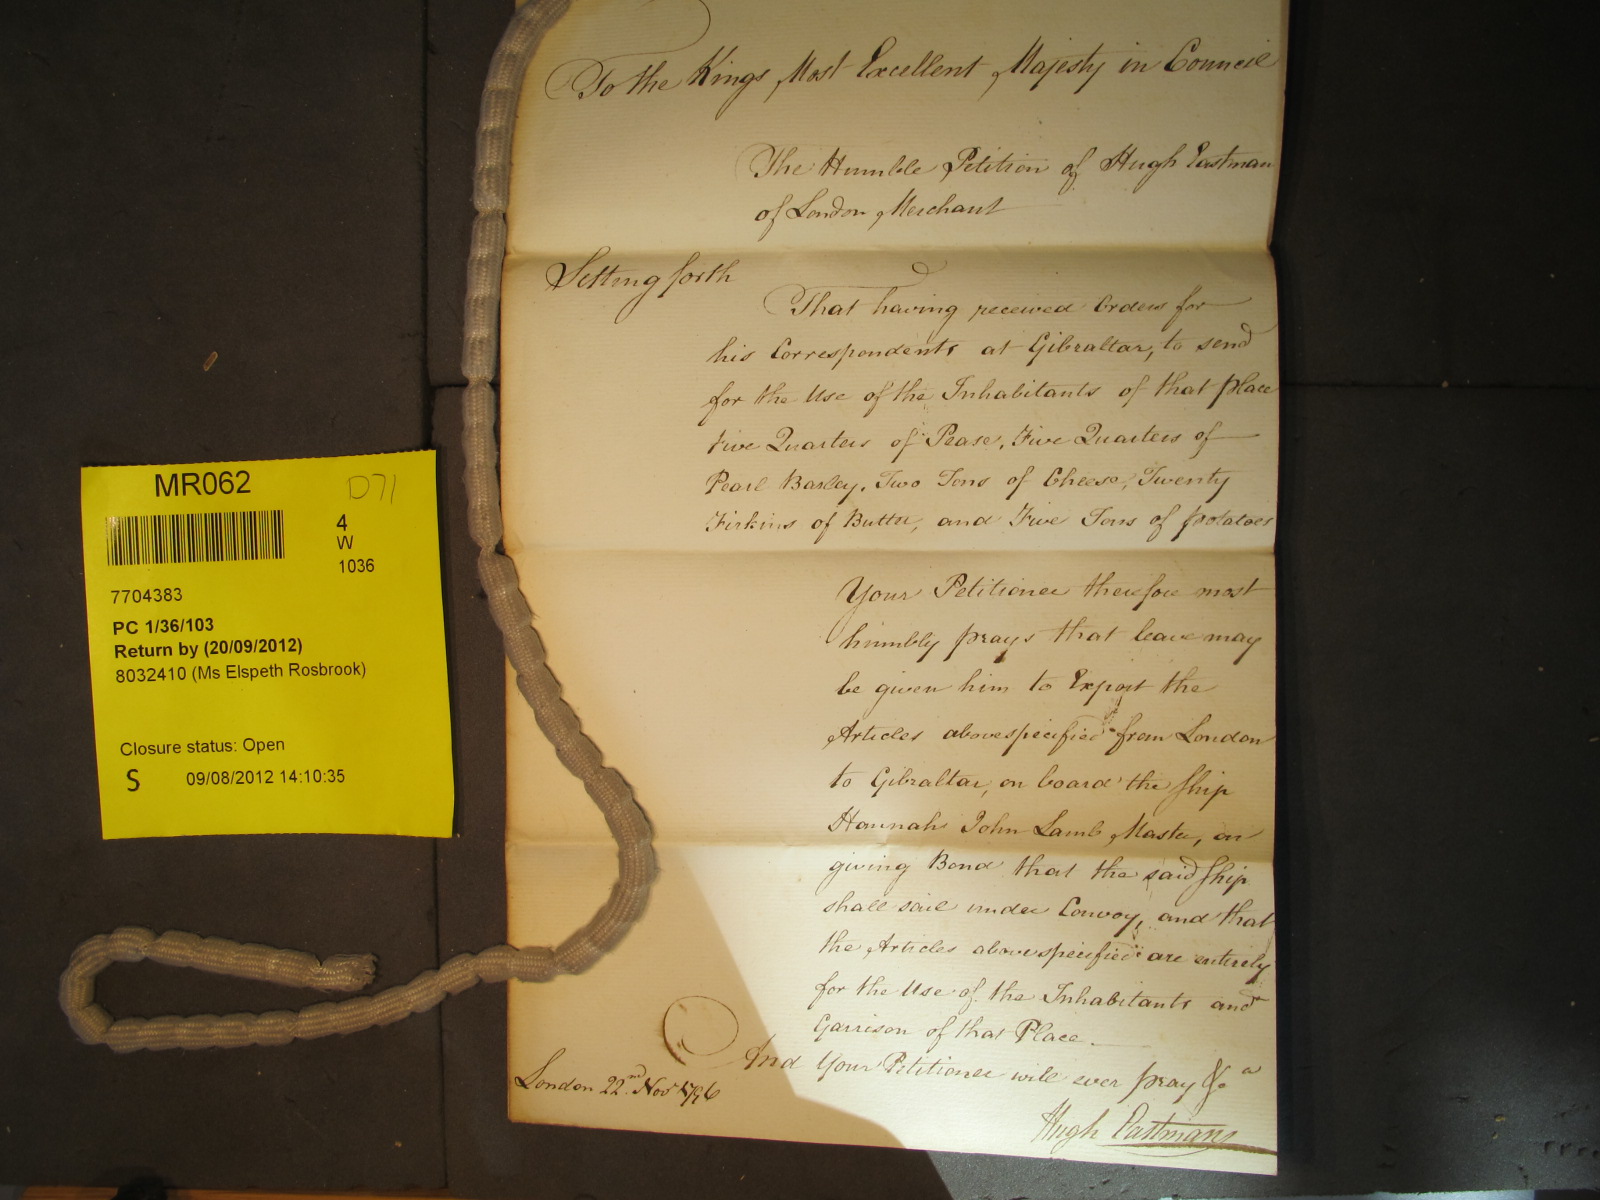 To the Kings Most Excellent Majesty in Council
The Humble Petition of Hugh Eastman
of London Merchant
Setting forth
That having received Orders for
his Correspondents at Gibraltar, to send
for the Use of the Inhabitants of that place
Five Quarters of Pease, Five Quarters of
Pearl Barley, Two Tons of Cheese, Twenty
Firkins of Butter, and Five Tons of potatoes
Your Petitioner therefore most
humbly prays that leave may
be given him to Export the
Articles abovespecified from London
to Gibraltar, on board the Ship
Hannah John Lamb Master, on
giving Bond that the said Ship
shall sail under Convoy, and that
the Articles abovespecified are entirely
for the Use of the Inhabitants and
Garrison of that Place.
And Your Petitioner will ever pray &ca
London 22nd Novr 1796
Hugh Eastman
MR062
D71
4
W
1036
7704383
PC 1/36/103
Return by (20/09/2012)
8032410 (Ms Elspeth Rosbrook)
Closure status: Open
S 09/08/2012 14:10:35